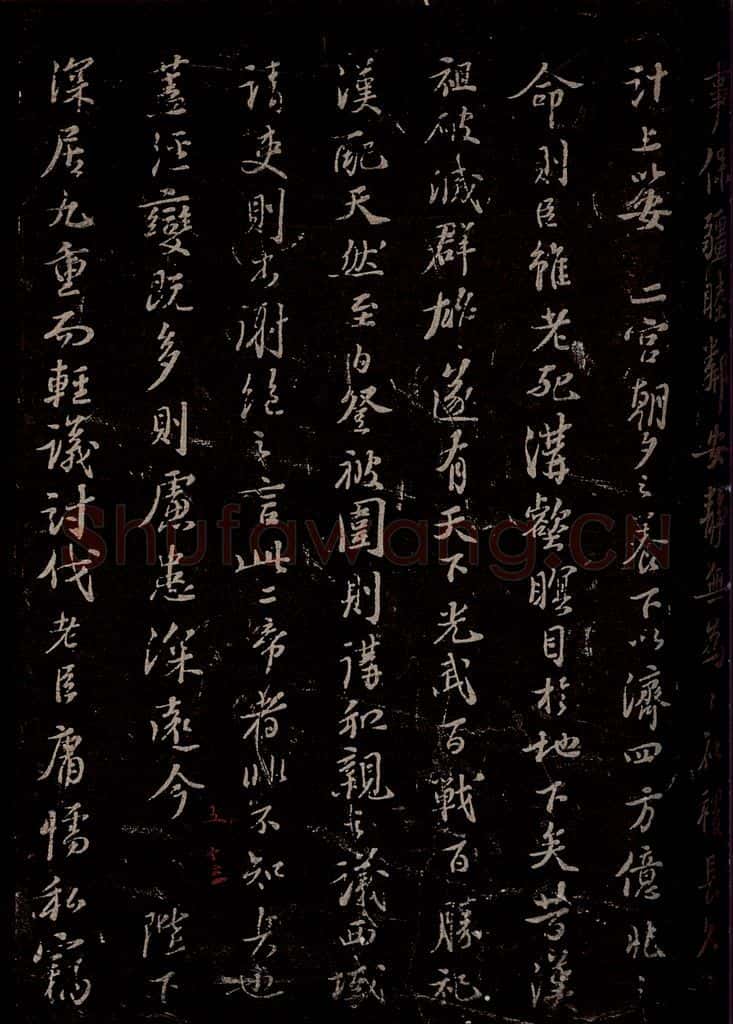 事保疆睦鄰安靜無為為社稷長久
計上以安 二宮朝夕之養下以濟四方億兆之
命則臣雖老死溝壑瞑目於地下矣昔漢
祖破滅群雄遂有天下光武百戰百勝祀
漢配天然至白登被圍則講和親之議西域
請吏則出謝絕之言此二帝者非不知兵也
蓋經變既多則慮患深遠今 陛下
深居九重而輕議討伐老臣庸懦私竊
Shufawang.CN